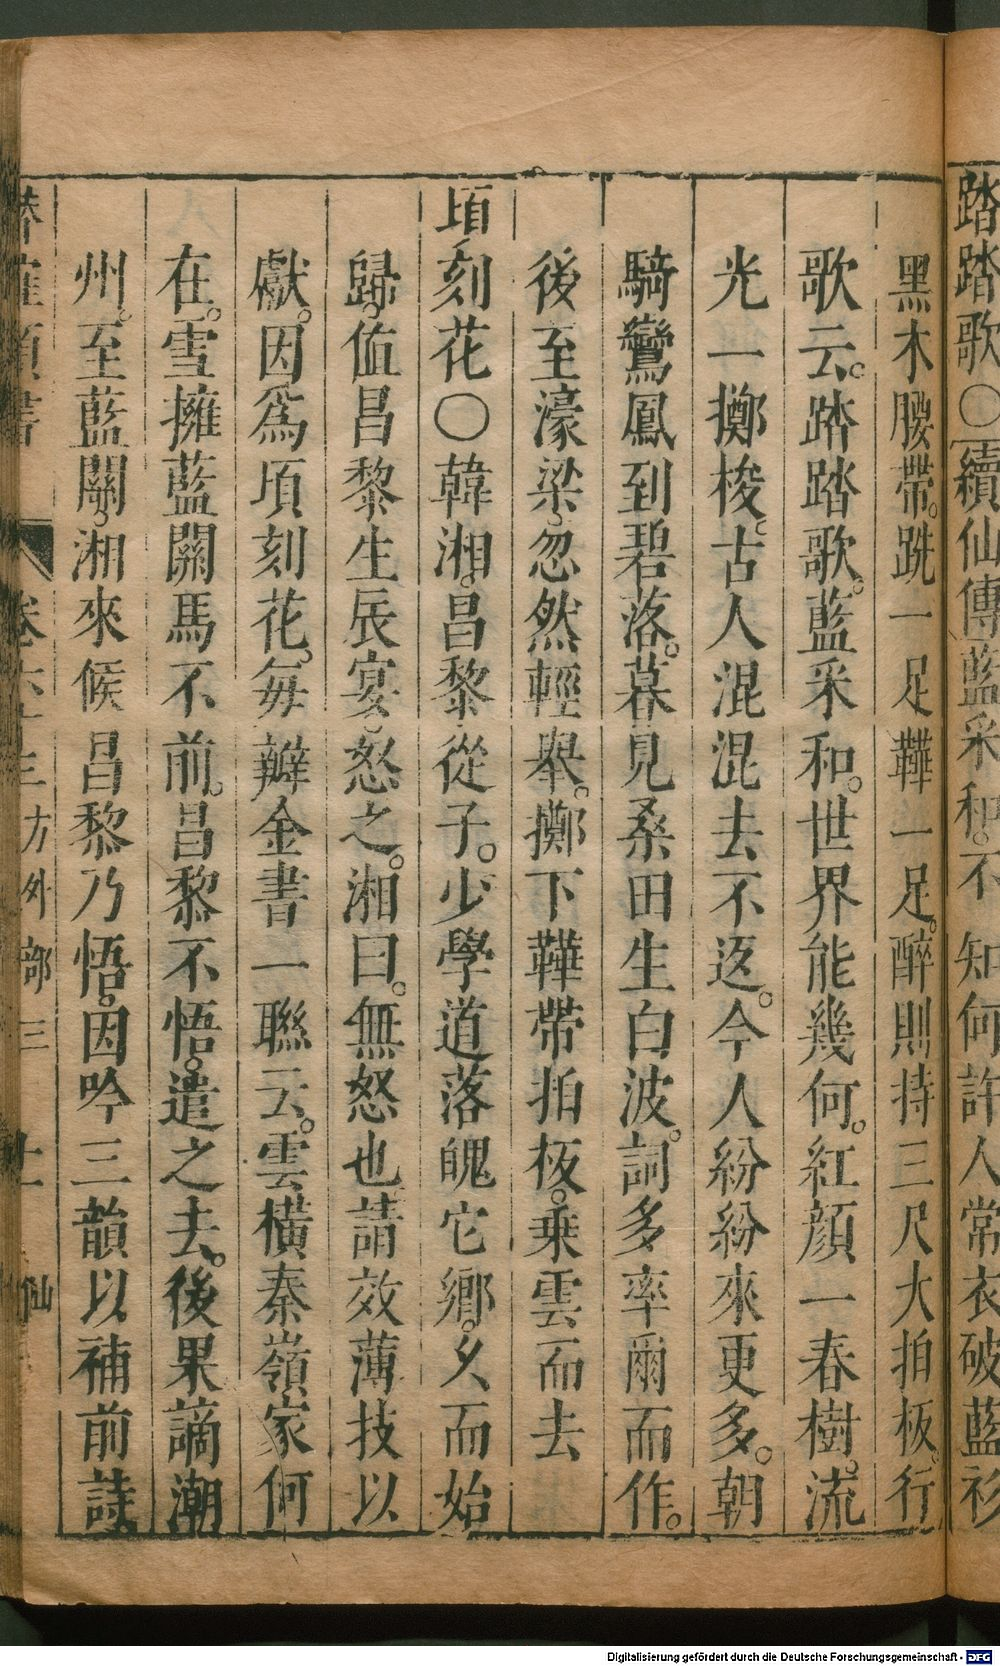 踏踏歌〇續仙傳藍采和。不知何許人常衣破藍衫
黑木腰帶。跣一足鞾一足。醉則持三尺大拍板。行
歌云。踏踏歌。藍采和。世界能幾何。紅顏一春樹。流
光一擲梭。古人混混去不返。今人紛紛來更多。朝
騎鸞鳳到碧落。暮見桑田生白波。詞多率爾而作。
後至濠梁。忽然輕舉。擲下鞾帶拍板。乗雲而去
頃刻花〇韓湘。昌黎從子。少學道落魄它鄉。乆而始
歸。值昌黎生辰宴。怒之。湘曰。無怒也請效薄技以
獻。因爲頃刻花。毎瓣金書一聯云。雲橫秦嶺家何
在。雪擁藍關馬不前。昌黎不悟。遣之去。後果謫潮
州。至藍關。湘來候昌黎乃悟。因吟三韻以補前詩
卷六十三方外部三 十一 仙
Digitalisierung gefördert durch die Deutsche Forschungsgemeinschaft - DFG